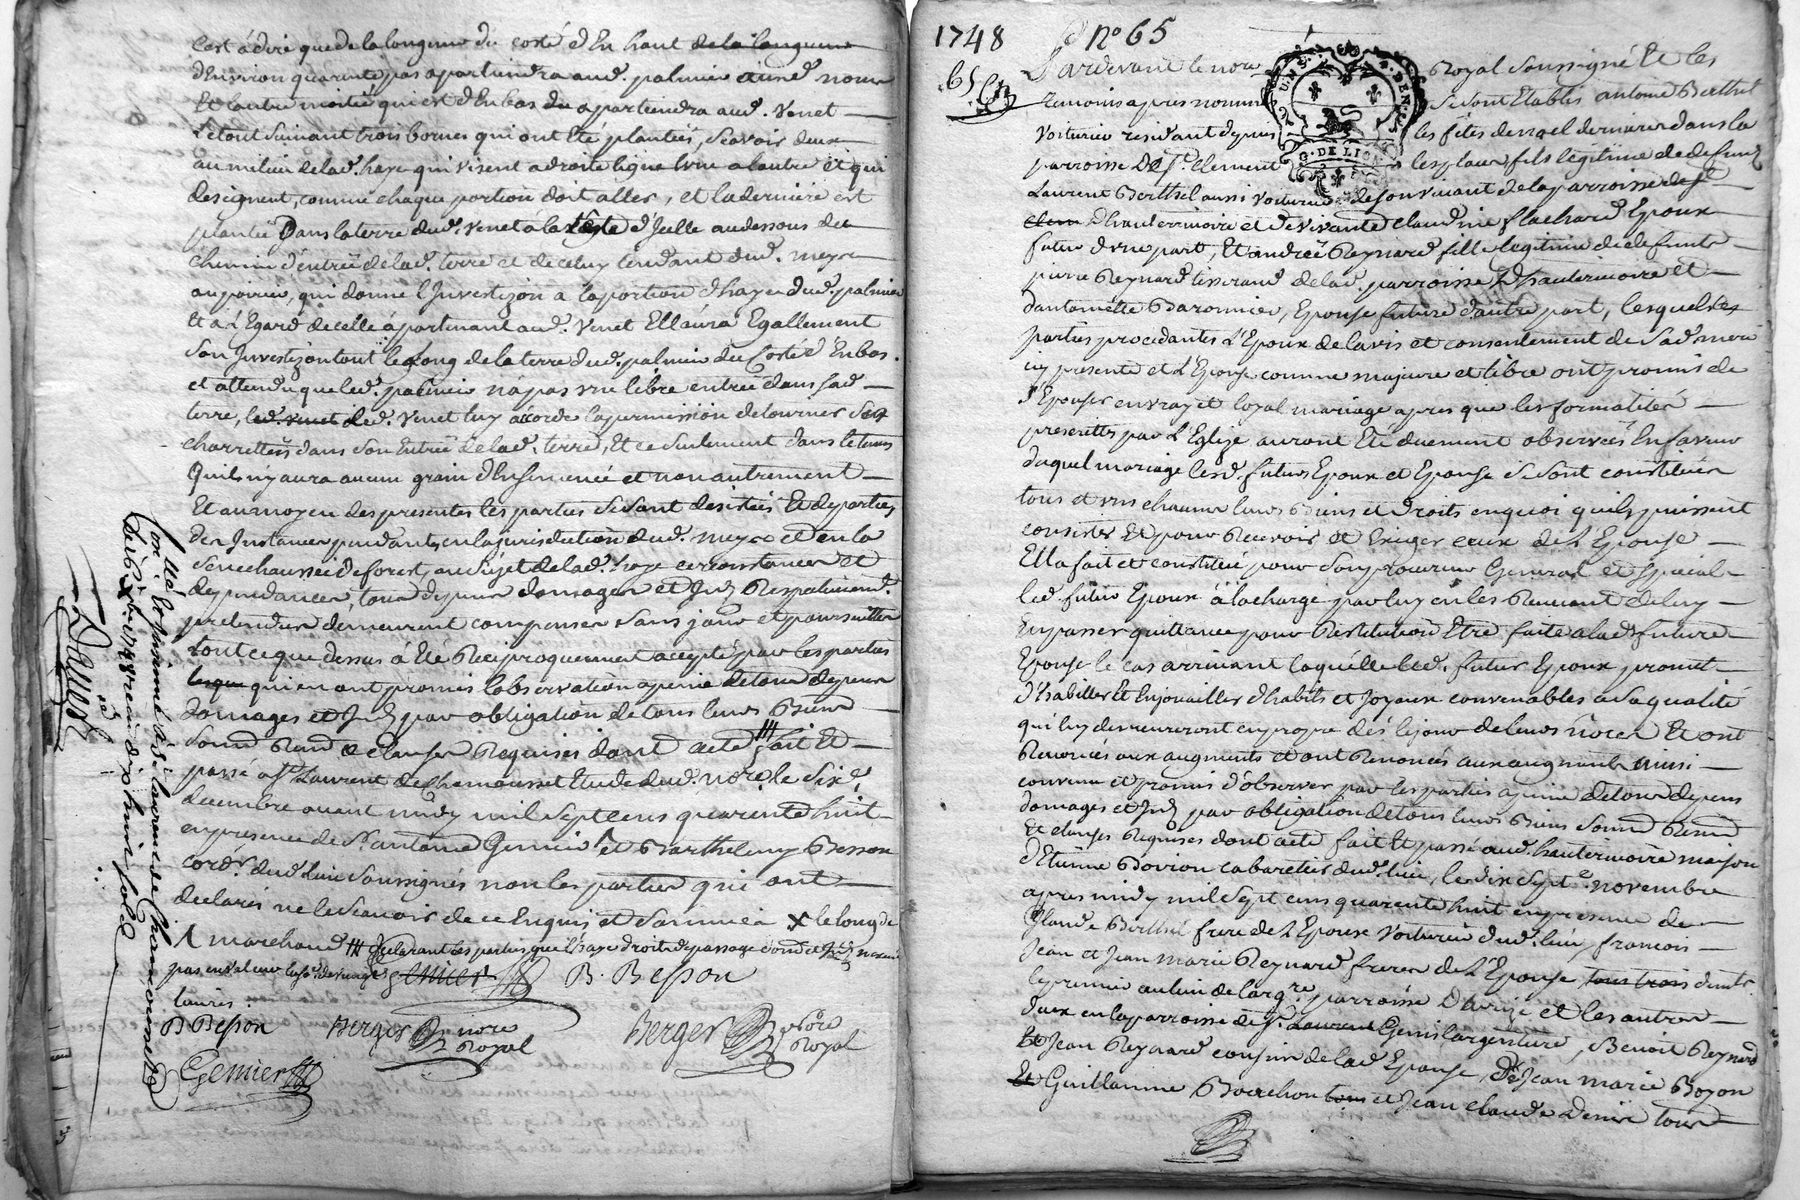 c'est à dire que de la longueur du costé d'En haut de la longueur
d'Environ quarante pas apartiendra aud. palmier aisné nome
Et l'autre moitié qui est d'En bas du apartiendra aud. Venet
Le tout suivant trois bornes qui ont Eté plantées, scavoir deux
au milieu de lad. haye qui visent a droite ligne l'une a l'autre Et qui
designent, comme chaque portion doit aller, et la derniere est
plantée Dans la terre dud. Venet à la teste d'Icelle au dessous du
chemin d'entrée de lad. terre et de celuy tendant dud. meys
au poirier, qui donne l'Investizon a la portion d'haye dud. palmier
Et à l'Egard de celle apartenant aud. Venet Ell aura Egallement
son Investizon tout le long de la terre dud. palmier du Costé d'En bas
et attendu que led. palmier n'a pas une libre entrée dans sad
terre, led. venet led. Venet luy acorde la permission de tourner ses
charrettes dans son Entrée de lad. terre, Et ce seulement dans le tems
Quil n'y aura aucun grain d'Ensemencé et non autrement
Et au moyen des presentes les parties se sont desistées Et departies
des Instances pendantes en la jurisdiction dud. meys et en la
senechaussée de forest, au sujet de lad. haye circonstances et
dependances, tous depens domages et Int. Respectivem.t
pretendus demeurent compensés sans jour et pour
tout ce que dessus à Eté Reciproquement accepté par les parties
lesque qui en ont promis l'observation a peine de tous depens
domages et Int. par obligation de tous leurs Biens
soum. Renon. & clauses Requises dont acte fait Et
passé a S.t Laurent de Chamousset Etude dud. no.re le six
decembre avant midy mil sept cens quarante huit
en presence de S.r antoine Gemier et Barthelemy Besson
cord.r dud. Lieu soussignés non les parties qui ont
declaré ne le scavoir de ce Enquis et sommés X le long de
Λ marchand declarant les parties que l'haye droit de passage
pas en valeur Gemier B. Besson
livres.
B Besson Berger no.re Royal Berger no.re Royal
Gemier
Conttrollé et Insinué à S.t laurent de Chamousset le
seize x.bre 1748 Reçu
David
1748 N° 65
65
Pardevant le no.re Royal soussigné Et les
temoins apres nommés se sont Etablis antoine Berthet
voiturier residant depuis les fêtes de noel dernieres dans la
parroisse De S.t Clement les places fils legitime de defunt
Laurent Berthet aussi voiturier de son vivant de la parroisse de S.t
Clem D'hauterivoire et de vivante Claudine flachard Epoux
futur d'une part, Et andrée Reynard fille legitime de defunt
pierre Reynard tisserand de lad. parroisse D'hauterivoire et
d'antoinette Baronnier, Epouse future d'autre part, lesquelles
parties procedantes l'Epoux de l'avis et consentement de sad. mere
icy presente et l'Epouse comme majeure et libre ont promis de
s'Epouser en vray et loyal mariage apres que les formalités
prescrittes par l'Eglize auront Eté duement observées En faveur
duquel mariage lesd. futurs Epoux et Epouse se sont constitués
tous et uns chacuns leurs Biens et droits en quoi quils puissent
consister Et pour Recevoir et Exiger ceux de l'Epouse
Ella fait et constitué pour son procureur General et special
led. futur Epoux à la charge par luy en les Recevant de luy
En passer quittance pour Restitution Etre faite a lad. future
Epouse le cas arrivant laquelle led. futur Epoux promet
d'habiller Et Enjouailler d'habits et joyaux convenables a sa qualité
qui luy demeureront en propre dès le jour de leurs nôces Et ont
Renoncés aux augments et ont Renoncés aux augments ainsi
convenu et promis d'observer par les parties a peine de tous depens
domages et Int. par obligation de tous leurs Biens soum. Renon.
Et clauses Requises dont acte fait Et passé aud. hauterivoire maison
d'Etienne Bovion cabaretier dud. lieu, le dix sept.e novembre
apres midy mil sept cens quarante huit en presence de
Claude Berthet frere de l'Epoux voiturier dud. lieu, francois
Jean et Jean marie Reynard freres de l'Epouse, tous trois dem.ts
le premier au lieu de l'arg.re parroisse D'avize et les autres
deux en la parroisse de S.t Laurent Genis l'argentiere, Benoit Reynard
Et Jean Reynard cousins de lad. Epouse, De Jean marie Boyon
Et Guillaume Bouchon tous et Jean claude Denis tous